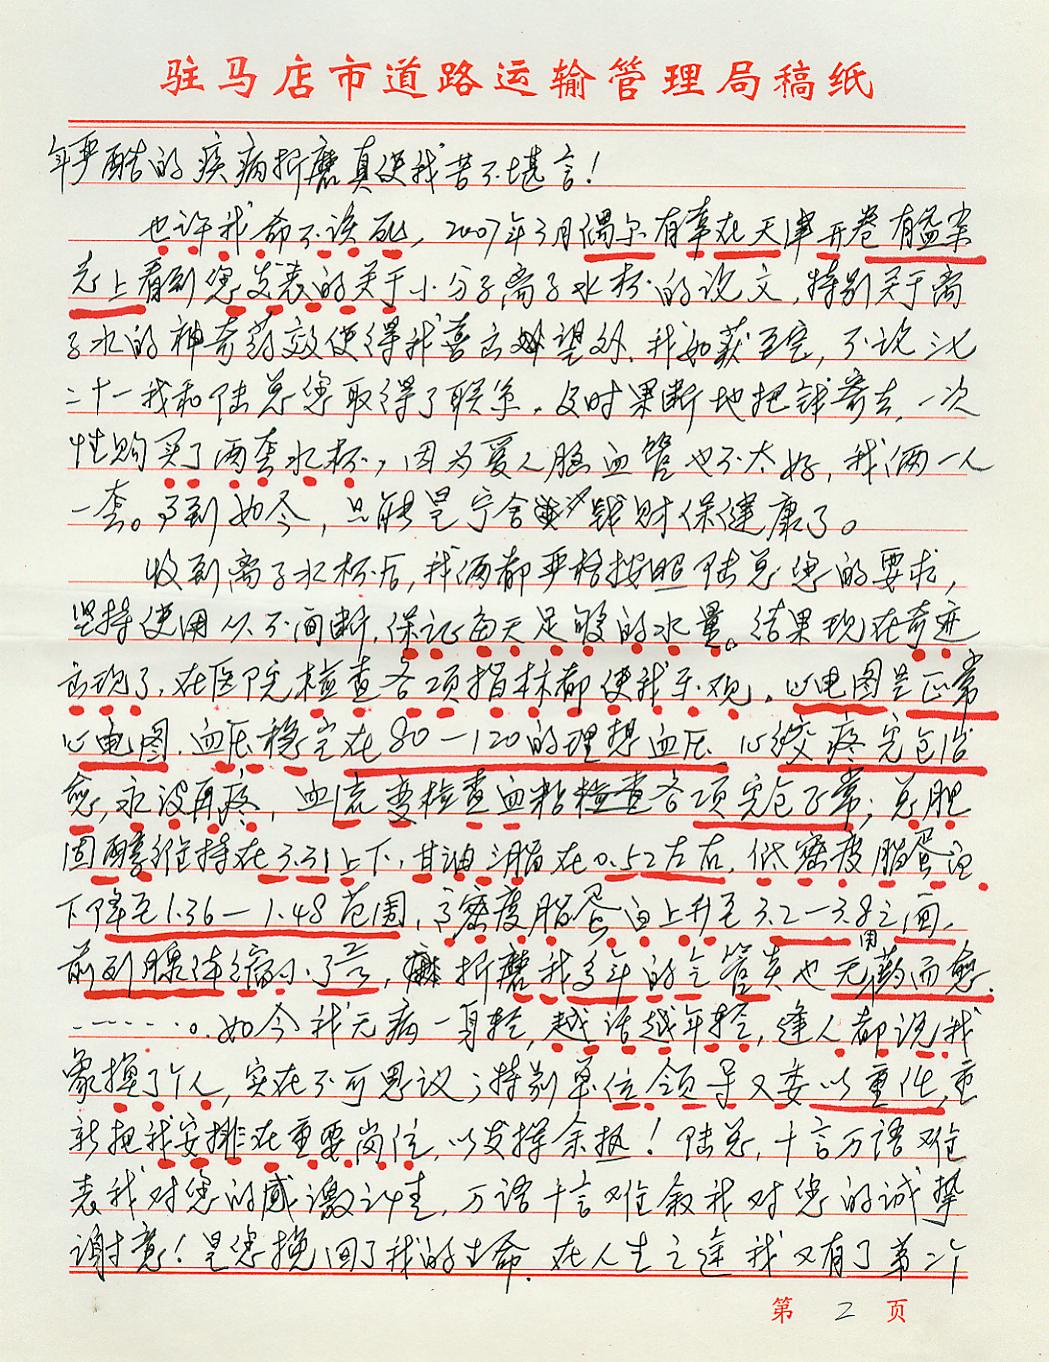 驻马店市道路运输管理局稿纸
年严酷的疾病折磨真使我苦不堪言！
也许我命不该死，2007年3月偶尔有事在天津开卷有益杂
志上看到您发表的关于小分子离子水杯的说文，特别关于离
子水的神奇药效使得我喜出望外、我如获至宝，不说三七
二十一我和陆总您取得了联系，及时果断地把钱寄去，一次
性购买了两套水杯，因为爱人脑血管也不太好，我俩一人
一套。事到如今，只能是宁舍钱财保健康了。
收到离子水杯后，我俩都严格按照陆总您的要求，
坚持使用从不间断，保证每天足够的水量。结果现在奇迹
出现了，在医院检查各项指标都使我乐观。心电图是正常
心电图，血压稳定在80—120的理想血压，心绞疼完全治
愈，永没再疼，血流变检查血粘检查各项完全正常；总胆
固醇维持在3.31上下，甘油三脂在0.52左右，低密度脂蛋白
下降至1.36—1.48范围，高密度脂蛋白上升至3.2—3.8之间，
前列腺体缩小了，折磨我多年的气管炎也无用药而愈。
……。如今我无病一身轻，越活越年轻，逢人都说我
象换了个人，实在不可思议；特别单位领导又委以重任，重
新把我安排在重要岗位，以发挥余热！陆总，千言万语难
表我对您的感激之情，万语千言难叙我对您的诚挚
谢意！是您挽回了我的生命，在人生之途我又有了第二个
第 2 页